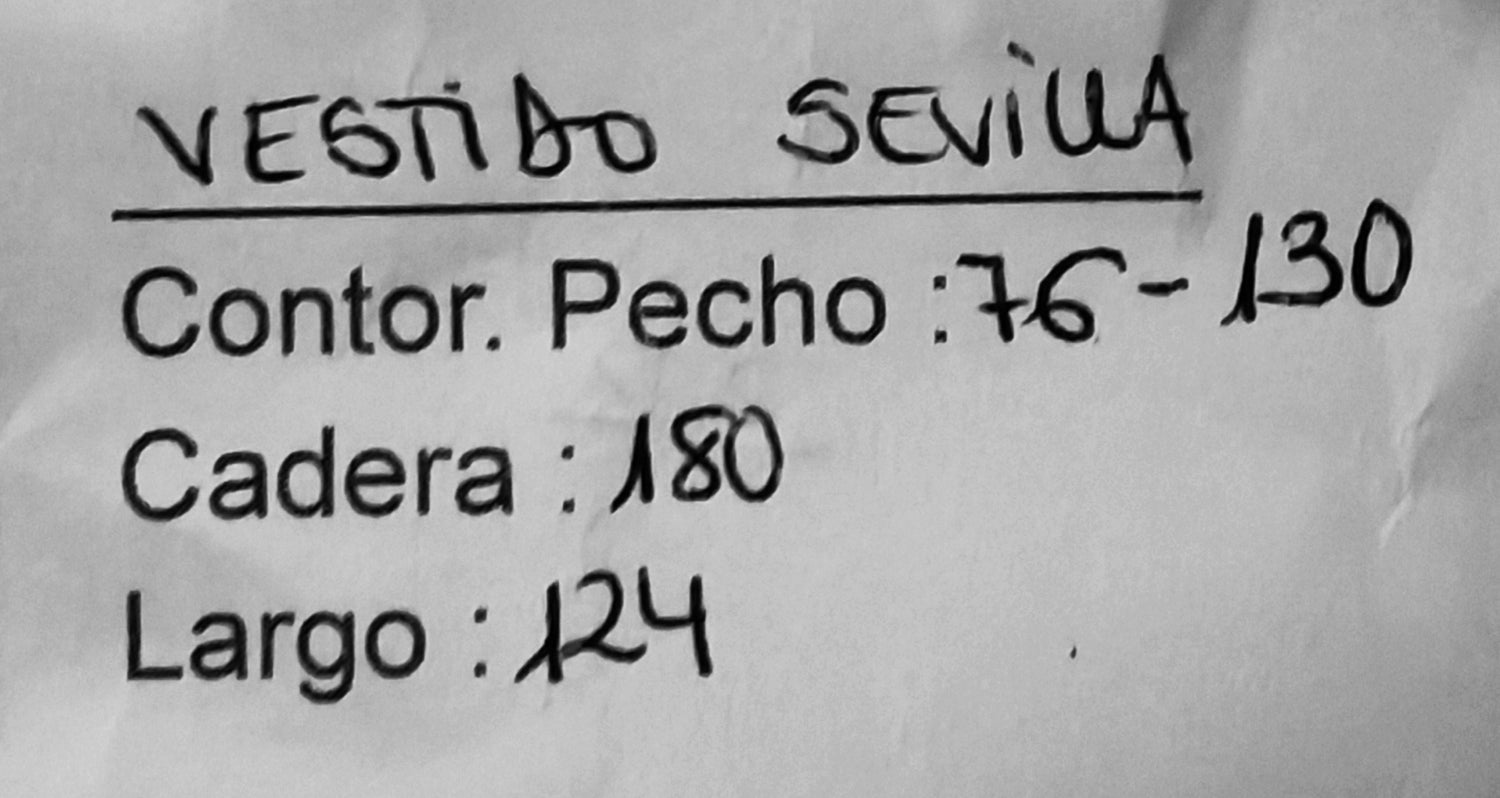 VESTiDO SEViLLA
Contor. Pecho :76-130
Cadera : 180
Largo : 124